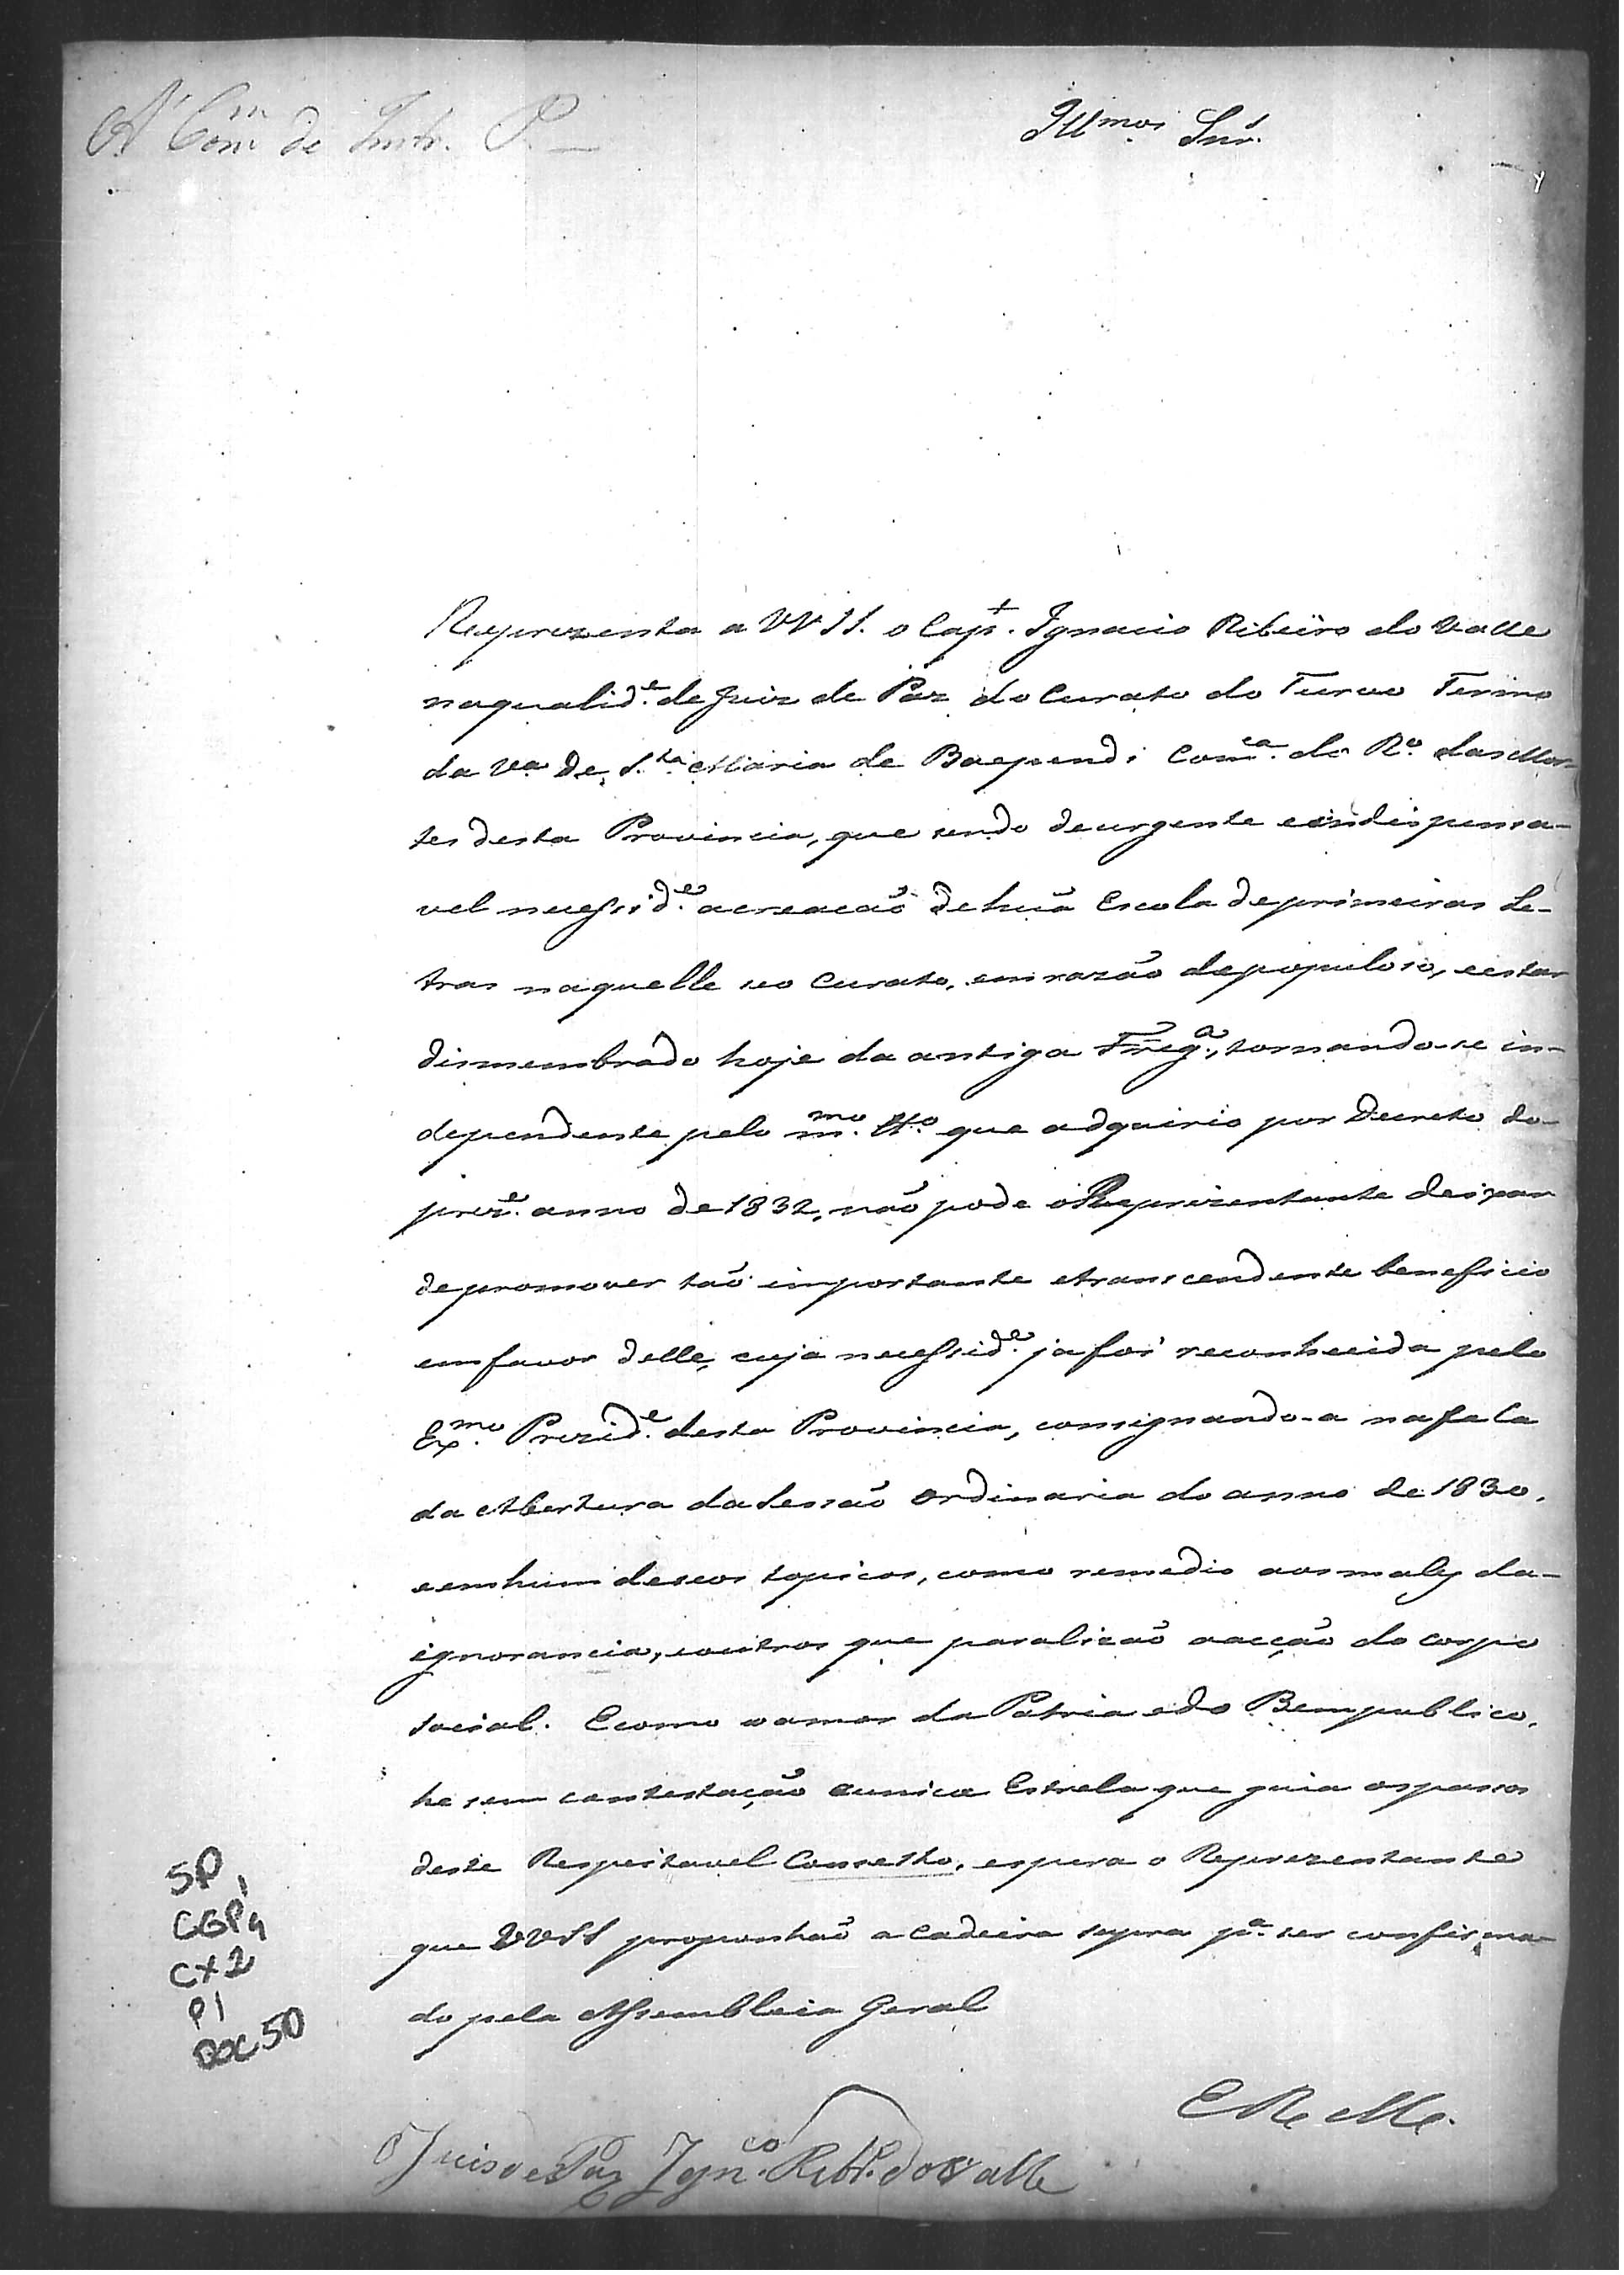 A' Com.m de Instr. P.
Ill.mos Snr.s
Reprezenta a VV SS. o Cap.t Ignacio Ribeiro do Valle
naqualid.e de Juiz de Paz do Curato do Turvo Termo
da V.a de S.ta Maria de Baependi Com.ca do R.o das Mor-
tes desta Provincia, que sendo deurgente eindispensa-
vel necessid.e acreacaõ dehuã Escola deprimeiras Le-
tras naquelle seo Curato, emrazão depopuloso, eestar
dismembrado hoje da antiga Freg.a, tornando-se in-
dependente pelo m.mo que adquirio por Decreto do
prez.e anno de 1832, naõ pode oReprezentante deixar
depromover taõ importante etranscendente beneficio
emfavor delle, cuja necessid.e jafoi reconhecida pelo
Ex.mo Prezid.e desta Provincia, consignando-a nafala
da Abertura daSessaõ Ordinaria do anno de 1830,
eemhum deseos topicos, como remedio aosmales da
ignorancia, eoutros que paralizaõ aacção do corpo
social. Ecomo oamor da Patria edo Bempublico,
he sem contestação aunica Estrela que guia ospassos
deste Respeitavel Conselho, espera o Reprezentante
que VVSS proponhaõ a Cadeira supra p.a ser confirma-
do pela Assembleia Geral
E R Me.
O Juis de Paz Ign.co Rib.ro do Valle
SP
CGP4
CX2
P1
DOC50